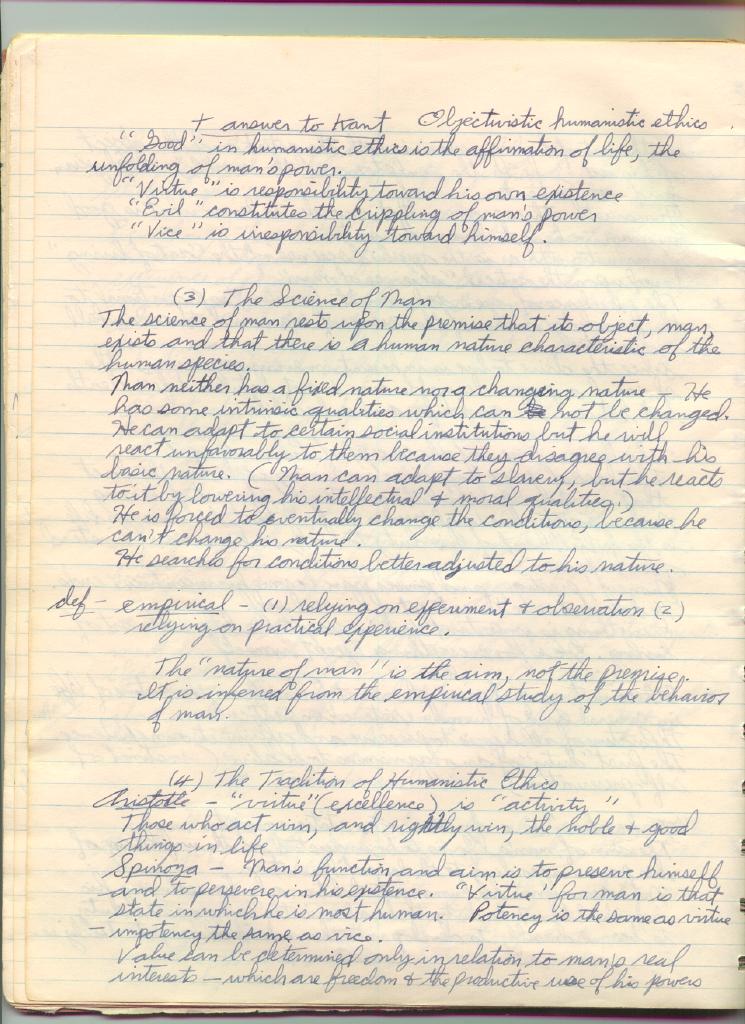 + answer to Kant Objectivistic humanistic ethics
"Good" in humanistic ethics is the affirmation of life, the
unfolding of man's power.
"Virtue" is responsibility toward his own existence
"Evil" constitutes the crippling of man's power
"Vice" is irresponsibility toward himself.
(3) The Science of Man
The science of man rests upon the premise that its object, man,
exists and that there is a human nature characteristic of the
human species.
Man neither has a fixed nature nor a changing nature - He
has some intrinsic qualities which can not be changed.
He can adapt to certain social institutions but he will
react unfavorably to them because they disagree with his
basic nature. (Man can adapt to slavery, but he reacts
to it by lowering his intellectual & moral qualities.)
He is forced to eventually change the conditions, because he
can't change his nature.
He searches for conditions better adjusted to his nature.
def - empirical - (1) relying on experiment & observation (2)
relying on practical experience.
The "nature of man" is the aim, not the premise.
It is inferred from the empirical study of the behavior
of man.
(4) The Tradition of Humanistic Ethics
Aristotle - "virtue" (excellence) is "activity"
Those who act win, and rightly win, the noble & good
things in life
Spinoza - Man's function and aim is to preserve himself
and to persevere in his existence. "Virtue" for man is that
state in which he is most human. Potency is the same as virtue
- impotency the same as vice.
Value can be determined only in relation to man's real
interests - which are freedom & the productive use of his powers